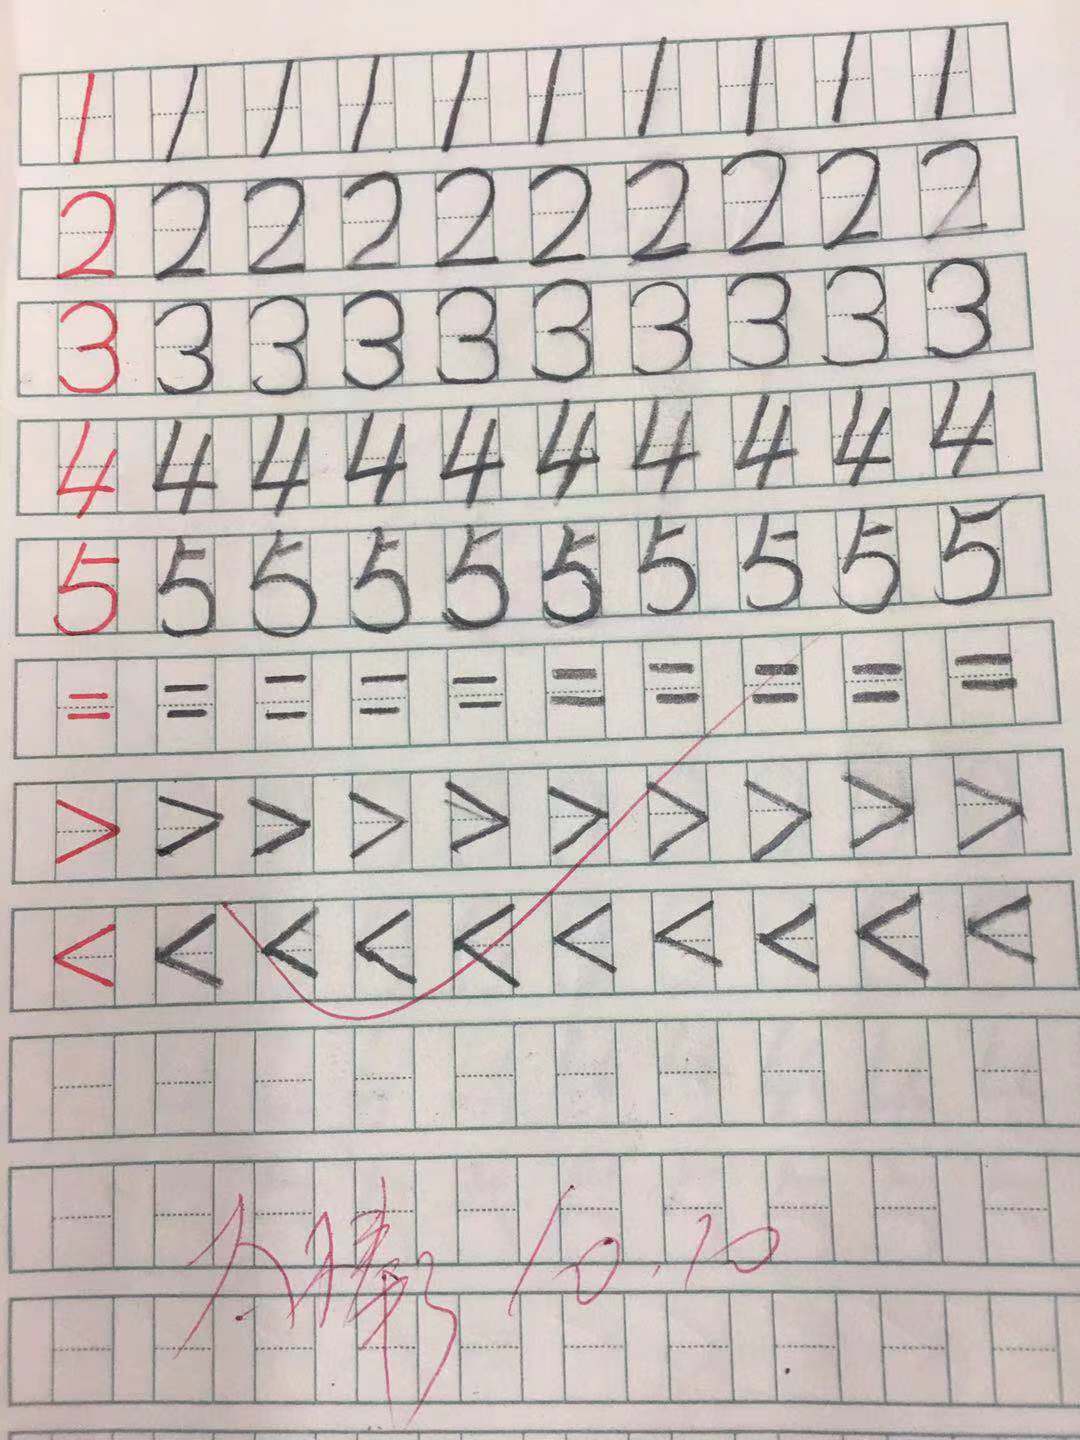 1 1 1 1 1 1 1 1 1 1
2 2 2 2 2 2 2 2 2 2
3 3 3 3 3 3 3 3 3 3
4 4 4 4 4 4 4 4 4 4
5 5 5 5 5 5 5 5 5 5
= = = = = = = = = =
> > > > > > > > > >
< < < < < < < < < <
太棒了 10.10